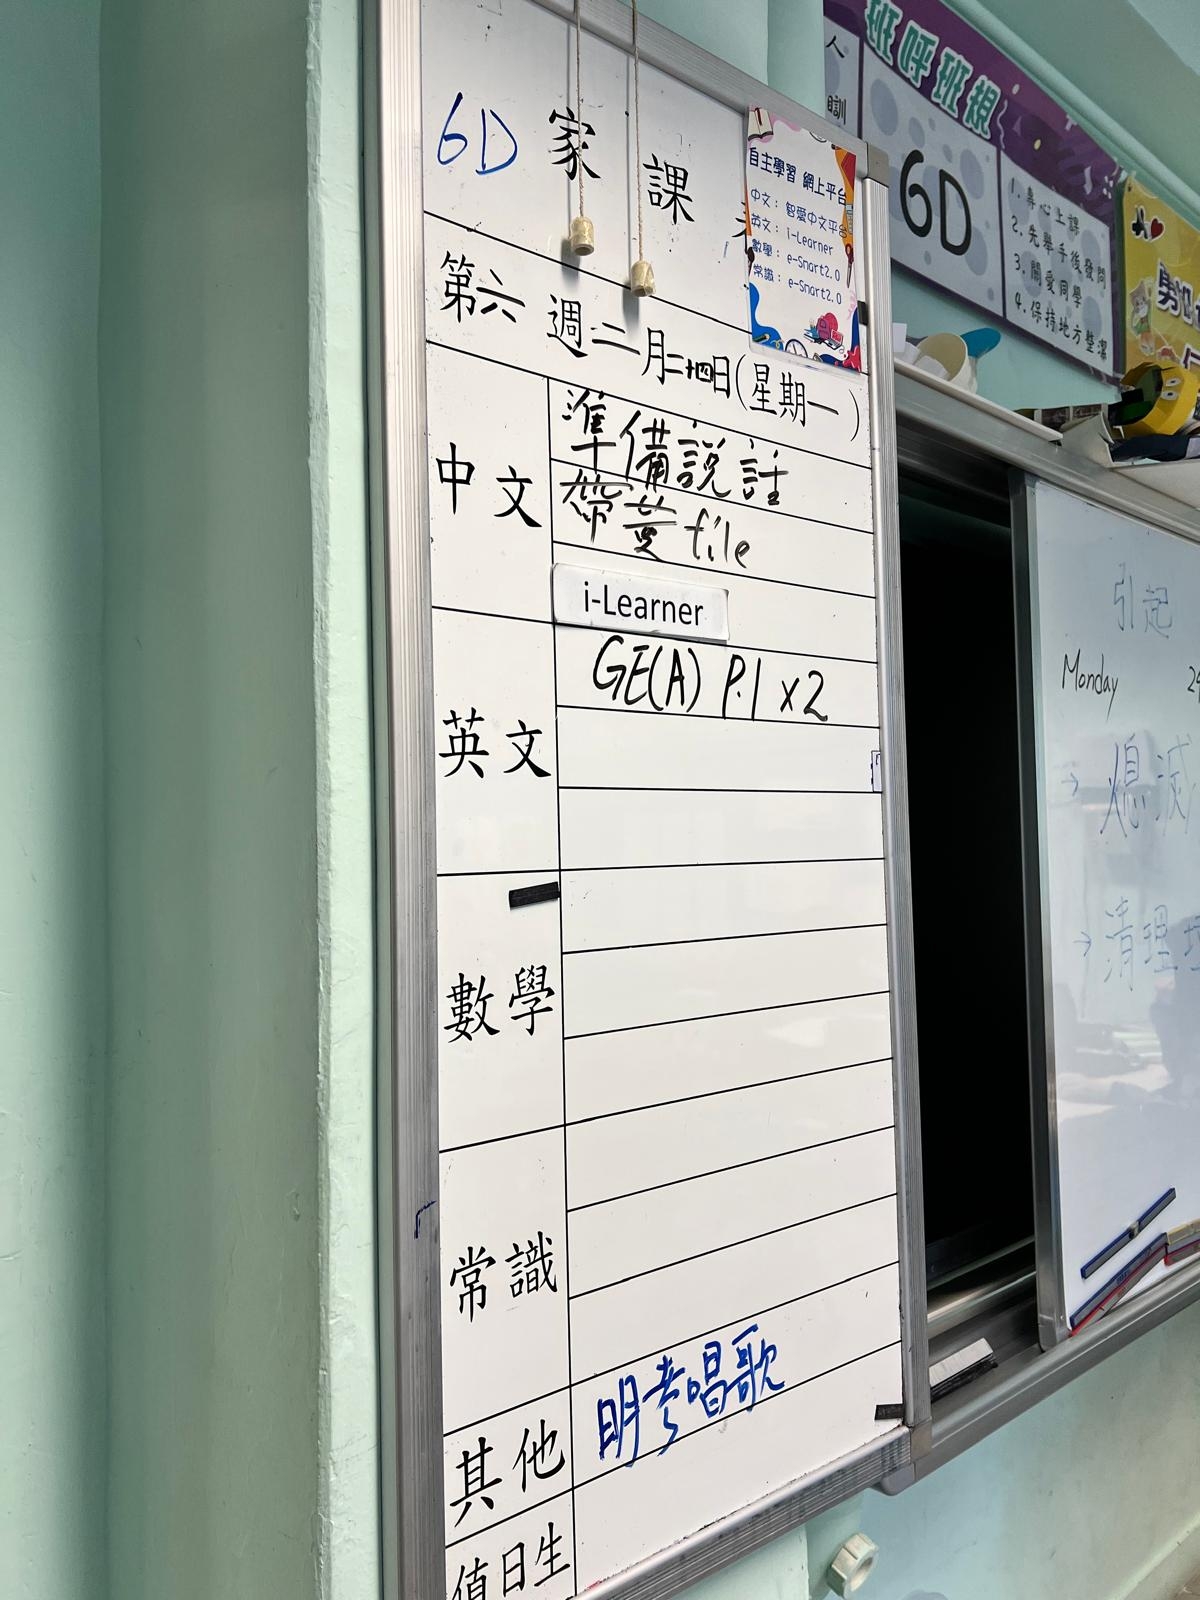 6D 家課
自主學習 網上平台
中文：智愛中文平台
英文：i-Learner
數學：e-Smart2.0
常識：e-Smart2.0
第六週二月二十四日(星期一)
中文
準備說話
帶黃file
i-Learner
英文
GE(A) P.1 x2
數學
常識
其他
明考唱歌
值日生
班呼班規
6D
1. 專心上課
2. 先舉手後發問
3. 關愛同學
4. 保持地方整潔
引起
Monday
→ 熄滅
→ 清理